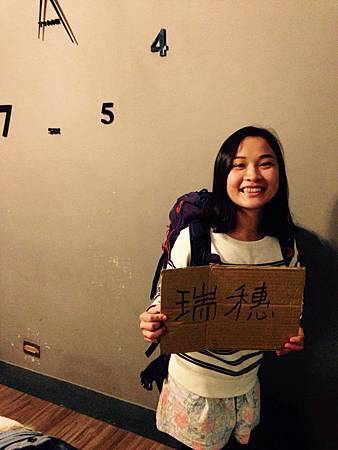 4
5
7
瑞穗